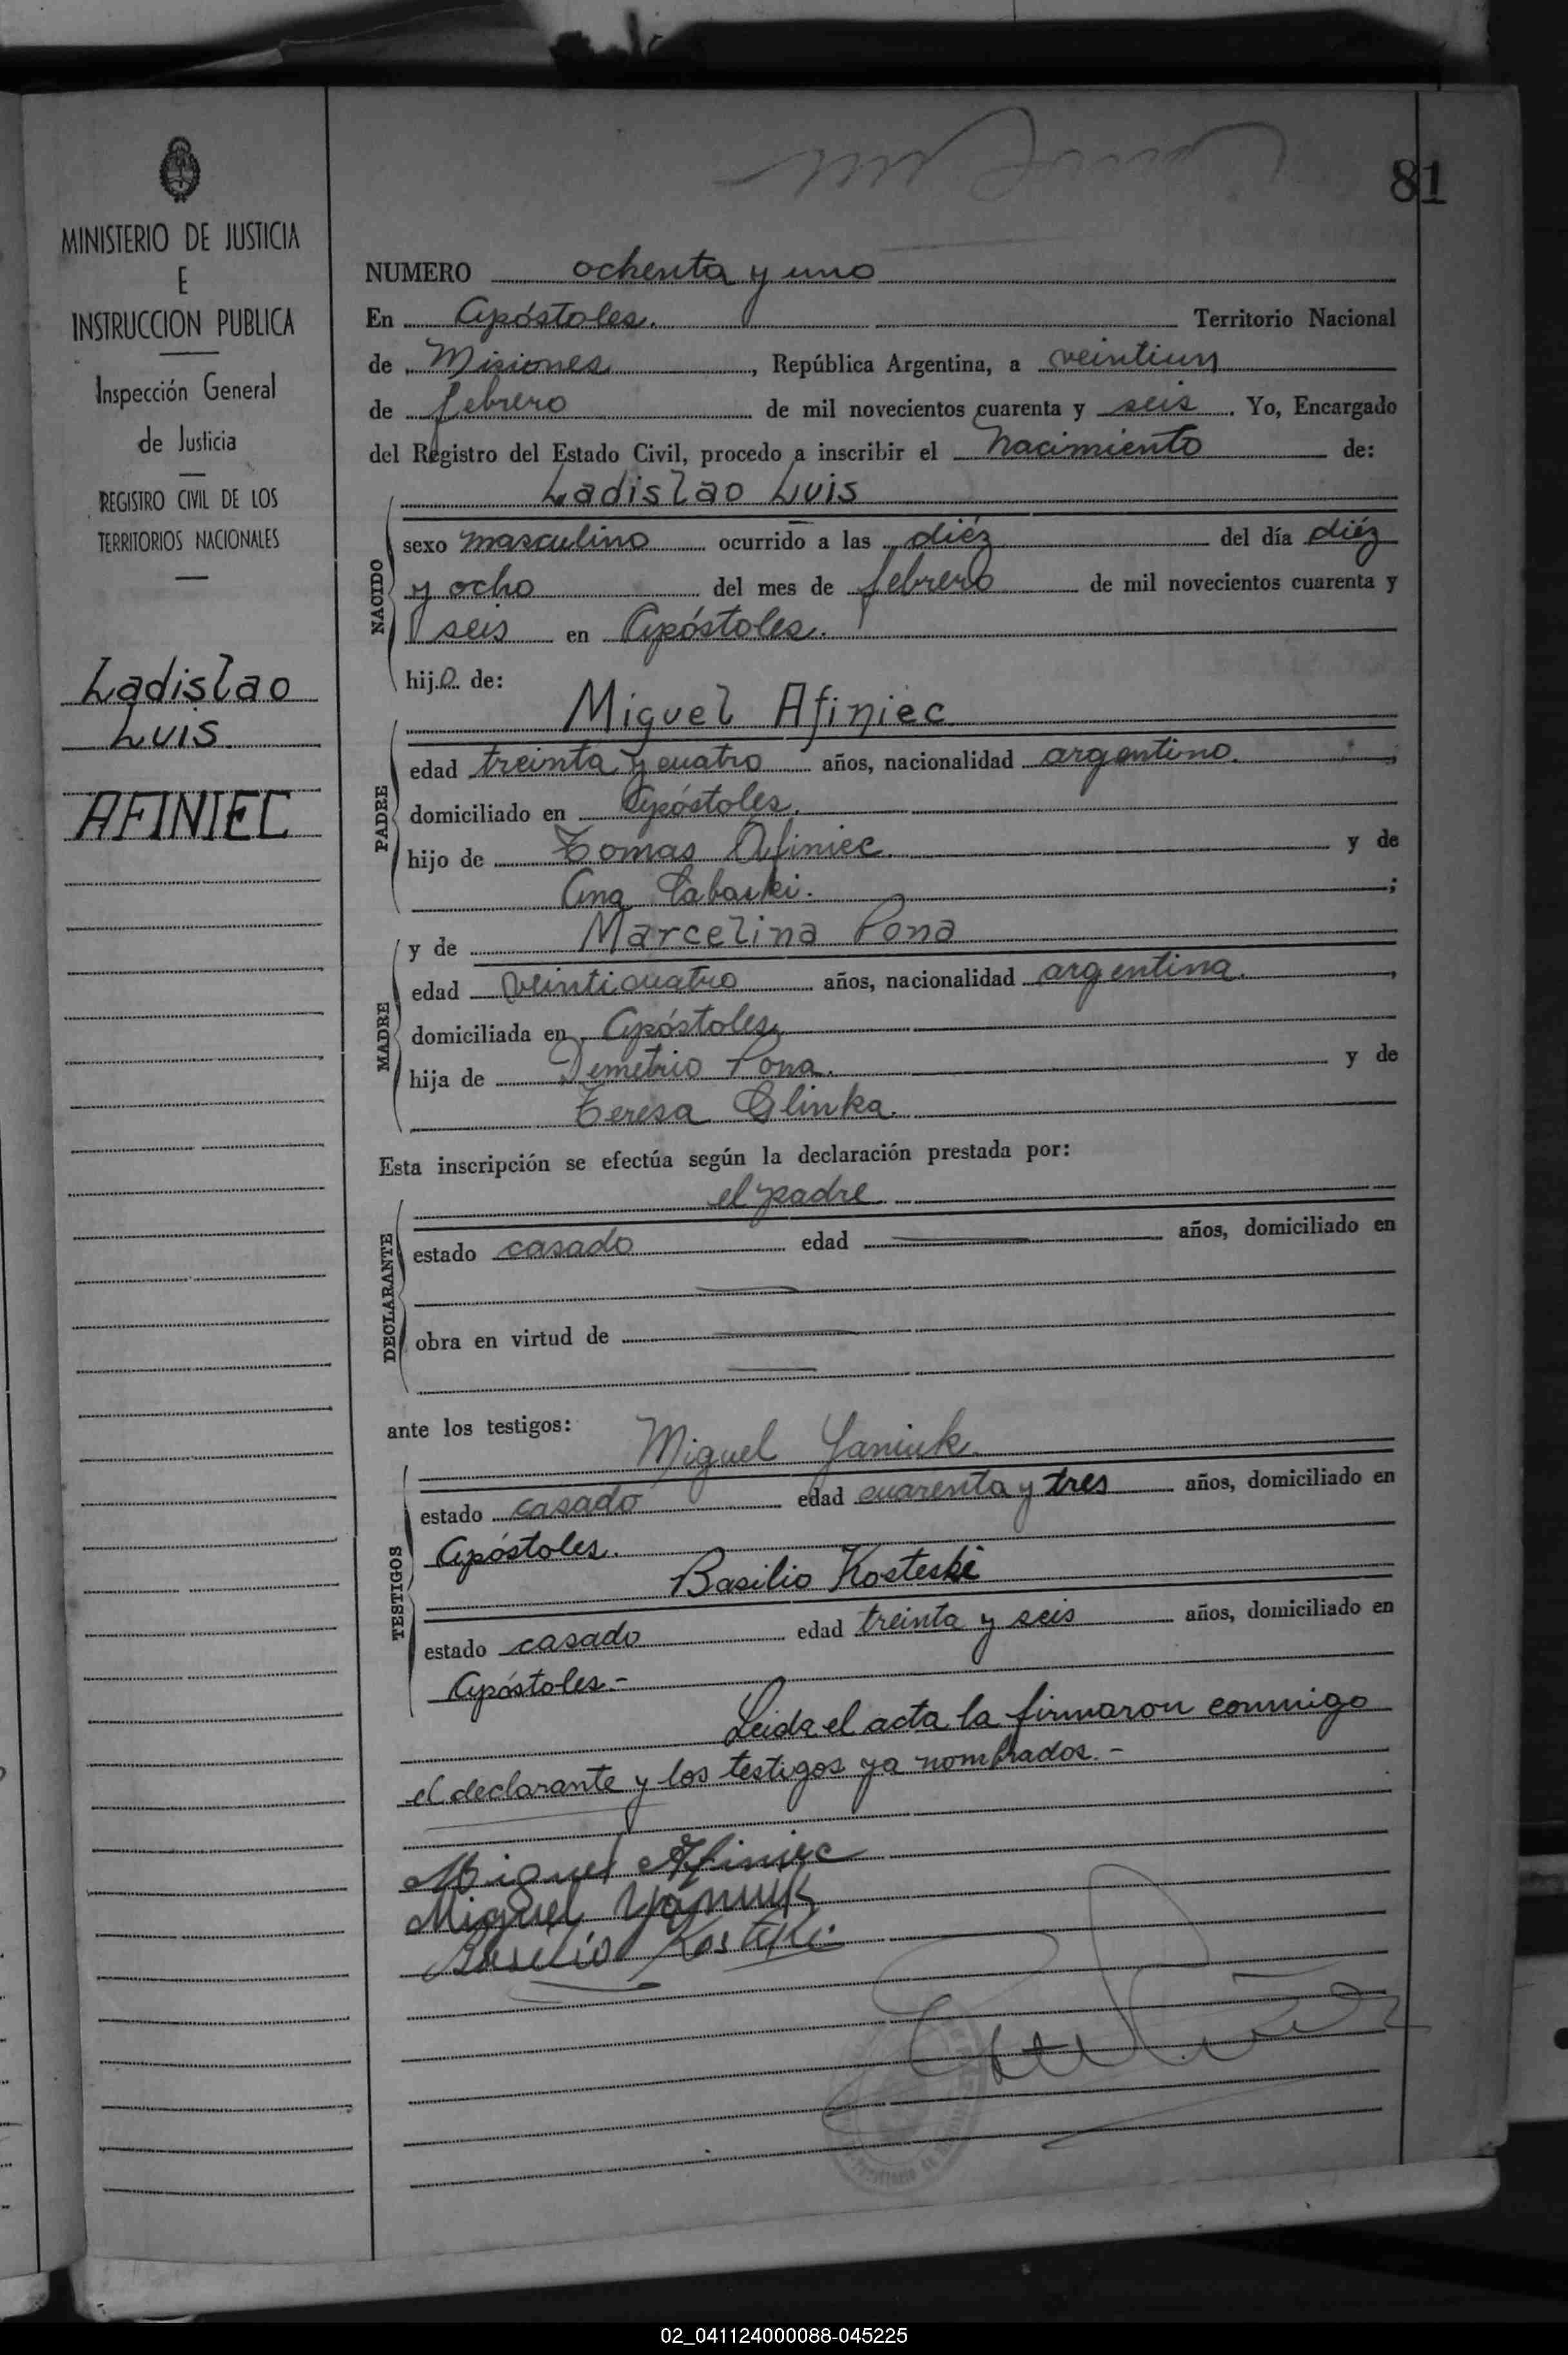 81
MINISTERIO DE JUSTICIA
E
INSTRUCCION PUBLICA
Inspección General
de Justicia
REGISTRO CIVIL DE LOS
TERRITORIOS NACIONALES
Ladislao
Luis
AFINIEC
NUMERO ochenta y uno
En Apóstoles. Territorio Nacional
de Misiones, República Argentina, a veintiun
de febrero de mil novecientos cuarenta y seis. Yo, Encargado
del Registro del Estado Civil, procedo a inscribir el Nacimiento de:
Ladislao Luis
NACIDO
sexo masculino ocurrido a las diéz del día diéz
y ocho del mes de febrero de mil novecientos cuarenta y
seis en Apóstoles.
hijo de:
Miguel Afiniec
PADRE
edad treinta y cuatro años, nacionalidad argentino.,
domiciliado en Apóstoles.
hijo de Tomas Afiniec. y de
Ana Labaski.;
y de Marcelina Pona
MADRE
edad veinticuatro años, nacionalidad argentina.,
domiciliada en Apóstoles.
hija de Demetrio Pona. y de
Teresa Glinka.
Esta inscripción se efectúa según la declaración prestada por:
el padre
DECLARANTE
estado casado edad años, domiciliado en
obra en virtud de
ante los testigos:
Miguel Yaniuk.
TESTIGOS
estado casado edad cuarenta y tres años, domiciliado en
Apóstoles.
Basilio Kosteski
estado casado edad treinta y seis años, domiciliado en
Apóstoles.-
Leida el acta la firmaron conmigo
el declarante y los testigos ya nombrados.-
Miguel Afiniec
Miguel Yaniuk
Basilio Kosteki
02_041124000088-045225